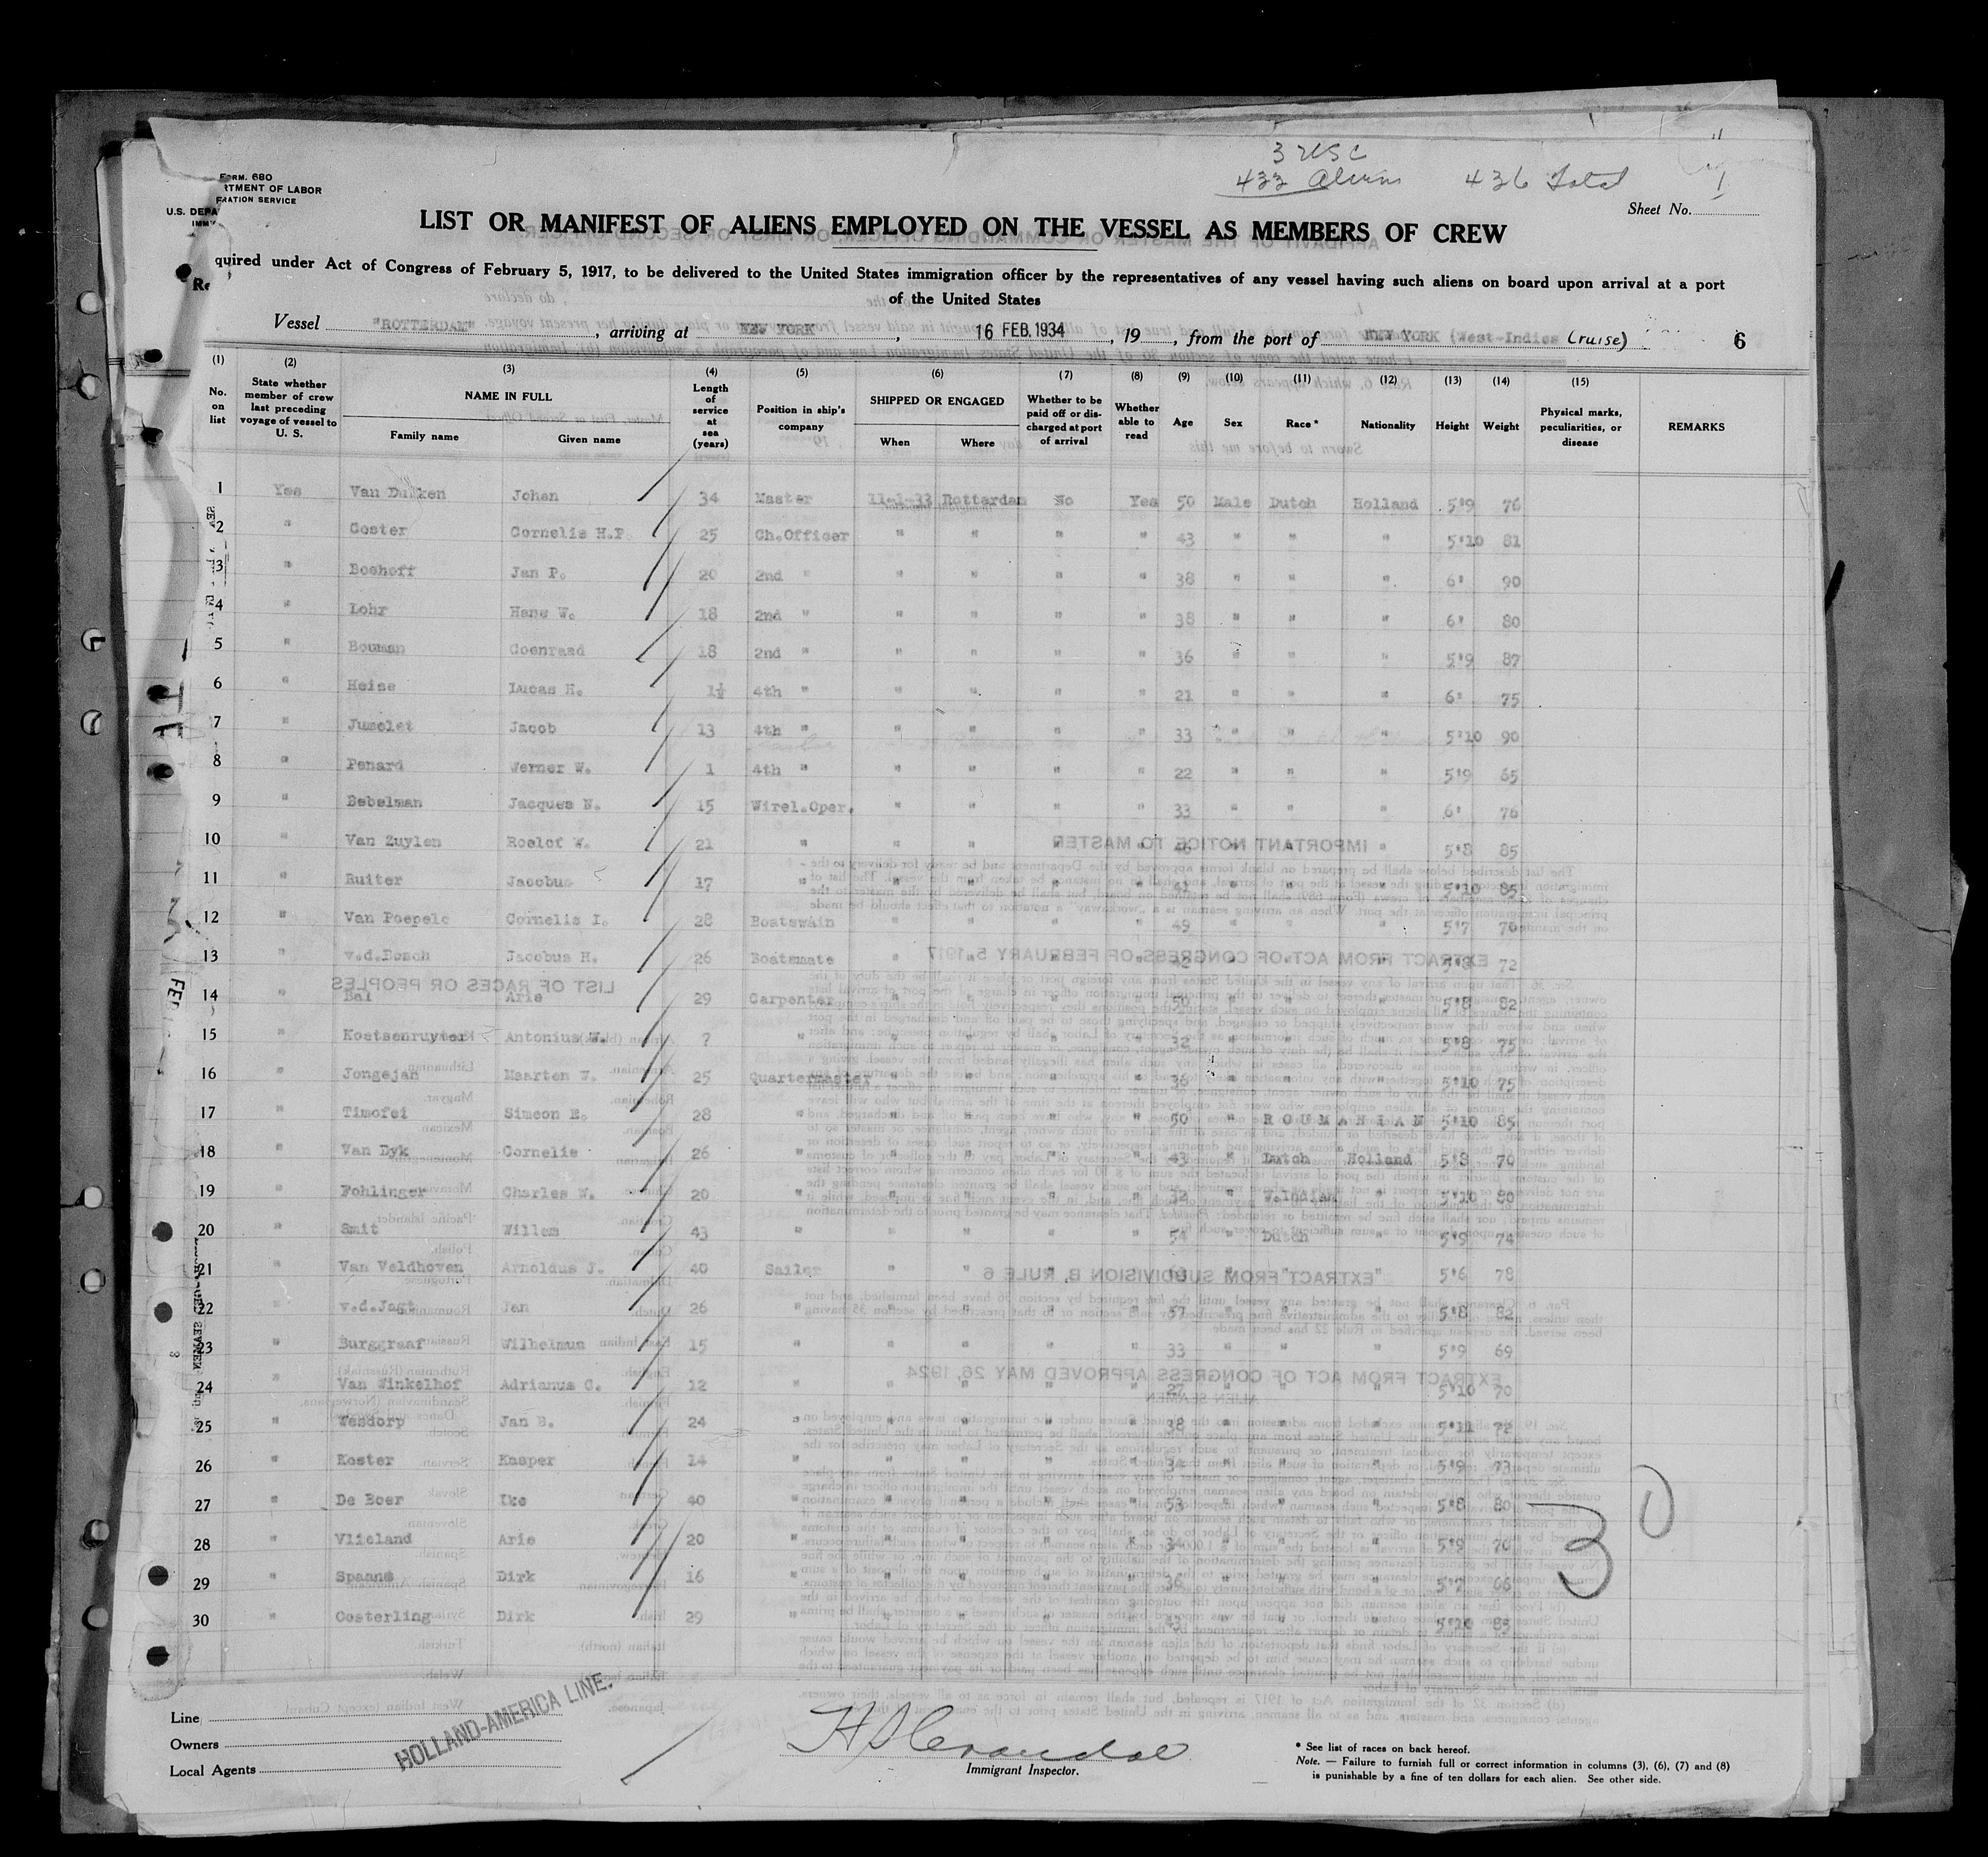 3 USC
433 Aliens 436 Total 1
FORM. 680
RTMENT OF LABOR
RATION SERVICE
U.S. DEPA
IMM
Sheet No.
LIST OR MANIFEST OF ALIENS EMPLOYED ON THE VESSEL AS MEMBERS OF CREW
Re quired under Act of Congress of February 5, 1917, to be delivered to the United States immigration officer by the representatives of any vessel having such aliens on board upon arrival at a port
of the United States
Vessel "ROTTERDAM", arriving at NEW YORK, 16 FEB. 1934, 19, from the port of NEW YORK (West-Indies Cruise) 6
(1) (2) (3) (4) (5) (6) (7) (8) (9) (10) (11) (12) (13) (14) (15)
No. on list State whether member of crew last preceding voyage of vessel to U. S. NAME IN FULL Length of service at sea (years) Position in ship's company SHIPPED OR ENGAGED Whether to be paid off or discharged at port of arrival Whether able to read Age Sex Race * Nationality Height Weight Physical marks, peculiarities, or disease REMARKS
Family name Given name When Where
1 Yes Van Dulken Johan 34 Master 11-1-33 Rotterdam No Yes 50 Male Dutch Holland 5'9 76
2 " Coster Cornelis H.P. 25 Ch.Officer " " " " 43 " " " 5'10 81
3 " Boshoff Jan P. 20 2nd " " " " " 38 " " " 6' 90
4 " Lohr Hans W. 18 2nd " " " " " 38 " " " 6' 80
5 " Bouman Coenraad 18 2nd " " " " " 36 " " " 5'9 87
6 " Heise Lucas H. 1½ 4th " " " " " 21 " " " 6' 75
7 " Jumelet Jacob 13 4th " " " " " 33 " " " 5'10 90
8 " Penard Werner W. 1 4th " " " " " 22 " " " 5'9 65
9 " Bebelman Jacques N. 15 Wirel.Oper. " " " " 33 " " " 6' 76
10 " Van Zuylen Roelof W. 21 " " " " " " " " 5'8 85
11 " Ruiter Jacobus 17 " " " " " 41 " " " 5'10 85
12 " Van Poepele Cornelis I. 28 Boatswain " " " " 49 " " " 5'7 70
13 " v.d.Bosch Jacobus H. 26 Boatsmate " " " " " " " 5'8 72
14 " Bal Arie 29 Carpenter " " " " 50 " " " 5'8 82
15 " Kostsenruyter Antonius W. ? " " " " " 32 " " " 5'8 75
16 " Jongejan Maarten W. 25 Quartermaster " " " " 36 " " " 5'10 75
17 " Timofei Simeon E. 28 " " " " " 50 " ROUMANIAN 5'10 85
18 " Van Dyk Cornelis 26 " " " " " 43 " Dutch Holland 5'8 70
19 " Fohlinger Charles W. 20 " " " " " 32 " W.Indian " 5'10 80
20 " Smit Willem 43 " " " " " 54 " Dutch " 5'9 74
21 " Van Veldhoven Arnoldus J. 40 Sailor " " " " " " " 5'6 78
22 " v.d.Jagt Jan 26 " " " " " 57 " " " 5'8 82
23 " Burggraaf Wilhelmus 15 " " " " " 33 " " " 5'9 69
24 " Van Winkelhof Adrianus C. 12 " " " " " 27 " " " 5'10 70
25 " Wesdorp Jan B. 24 " " " " " 38 " " " 5'11 72
26 " Koster Kasper 14 " " " " " 34 " " " 5'9 73
27 " De Boer Ike 40 " " " " " 53 " " " 5'8 80
28 " Vlieland Arie 20 " " " " " 34 " " " 5'9 70
29 " Spaans Dirk 16 " " " " " 36 " " " 5'7 66
30 " Oosterling Dirk 29 " " " " " 43 " " " 5'10 83
30
Line
Owners
Local Agents
HOLLAND-AMERICA LINE.
Immigrant Inspector.
* See list of races on back hereof.
Note. — Failure to furnish full or correct information in columns (3), (6), (7) and (8)
is punishable by a fine of ten dollars for each alien. See other side.